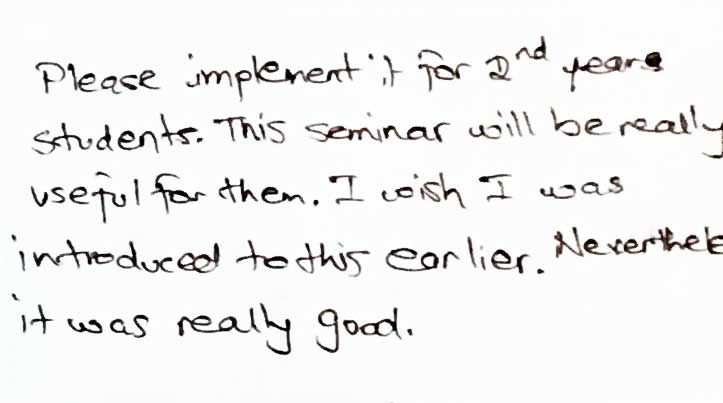 Please implement it for 2nd years
students. This seminar will be really
useful for them. I wish I was
introduced to this earlier. Neverthele
it was really good.